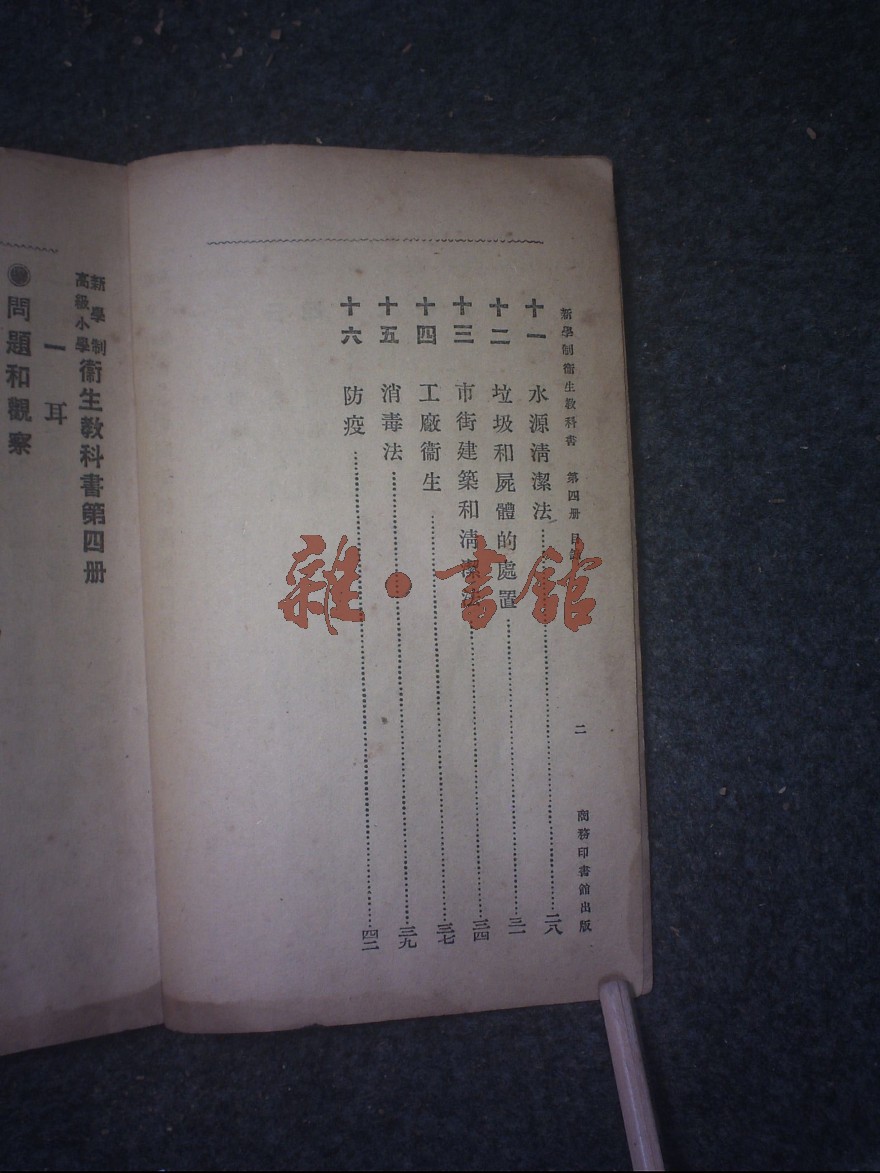 新學制衞生教科書 第四册 目錄 二 商務印書館出版
十一 水源淸潔法 二八
十二 垃圾和屍體的處置 三一
十三 市街建築和淸潔法 三四
十四 工廠衞生 三七
十五 消毒法 三九
十六 防疫 四二
新學制高級小學衞生教科書第四册
一 耳
問題和觀察
雜·書館